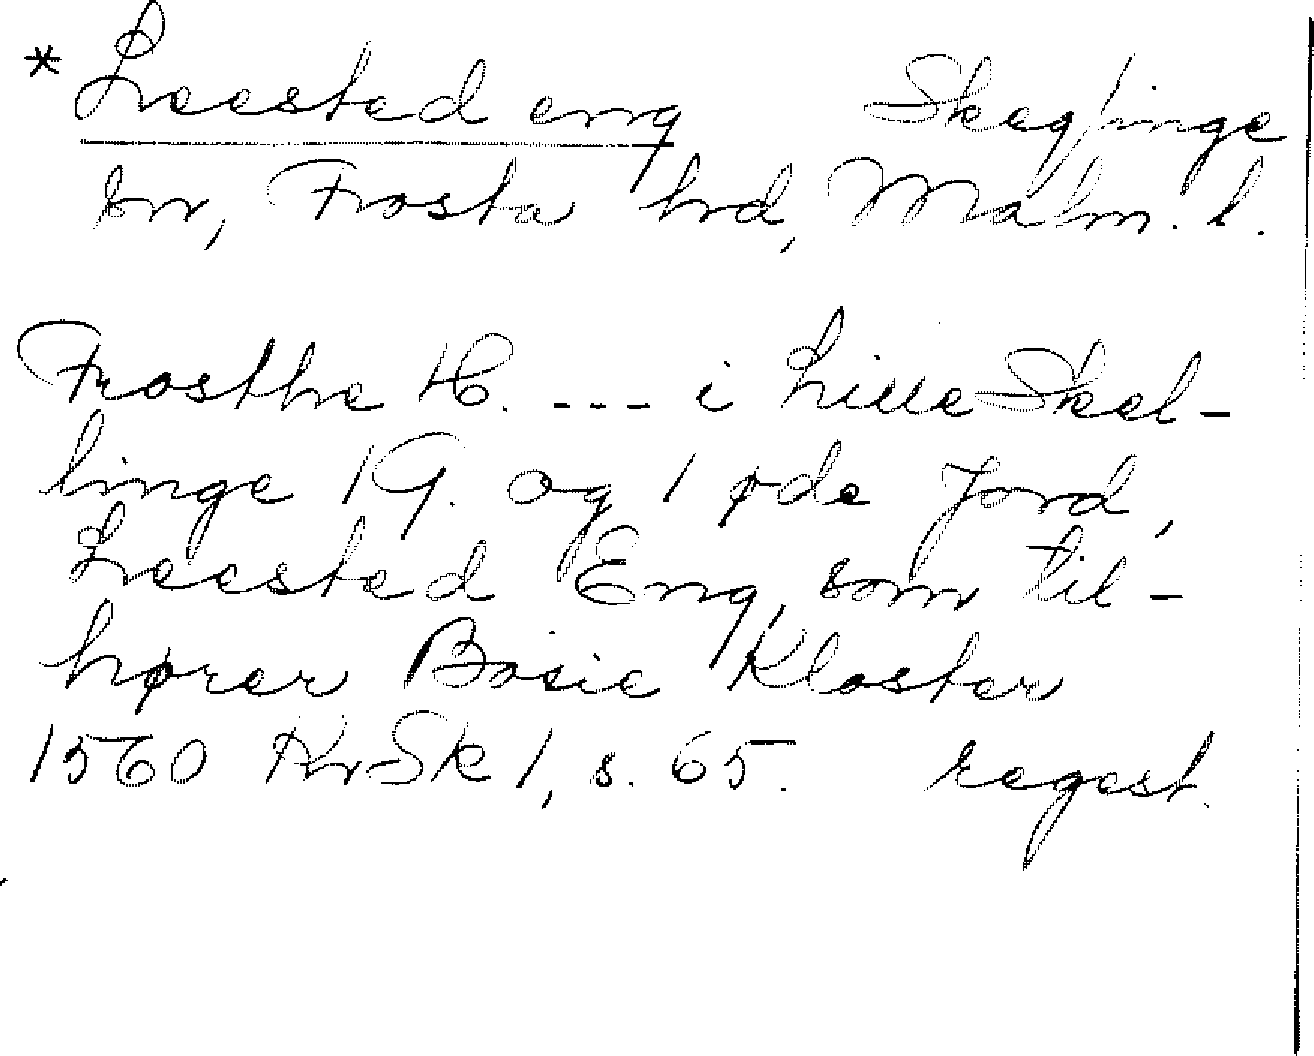 * Leested eng Skeglinge
sn, Frosta hrd, Malm. l.
Frosthe H. --- i Lille Skel-
linge 1 G. og 1 øde Jord,
Leested Eng, som til-
hører Bosie Kloster
1560 KrSk 1, s. 65. regest.